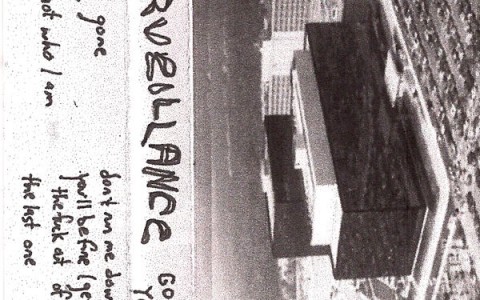 RVEILLANCE
GO
gone
not who I am
don't run me down
you'll before I ge
the fuck out of
the last one